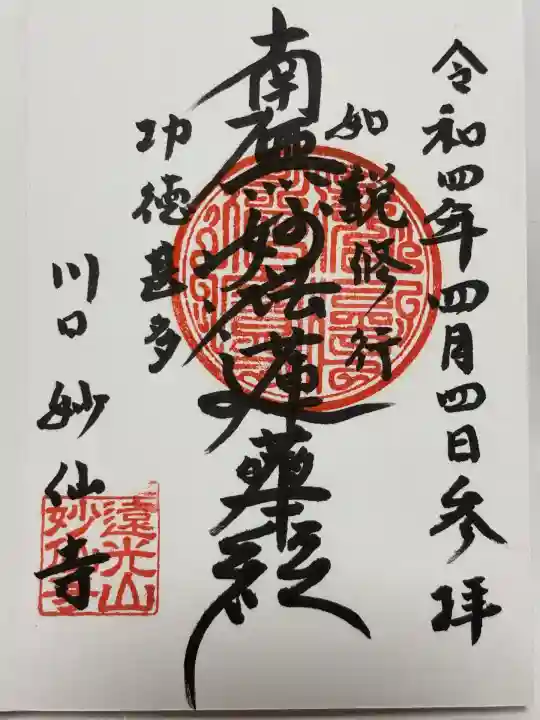 令和四年四月四日参拝
如説修行
南無妙法蓮華経
功徳甚多
川口 妙仙寺
遠光山
妙仙寺